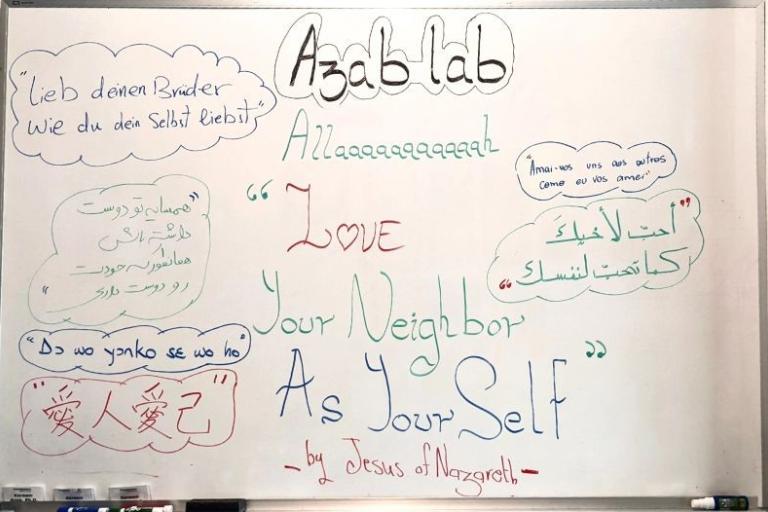 Azab lab
Allaaaaaaaaaaaah
“Love
Your Neighbor
As Your Self”
-by Jesus of Nazareth-
"Lieb deinen Brüder
wie du dein Selbst liebst"
"همسایه تو دوست
داشته باشی
همانطور که خودت
رو دوست داری"
"Dɔ wo yɔnko sɛ wo ho"
"愛人愛己"
"Amai-vos uns aos outros
como eu vos amei"
"أحبّ لأخيكَ
كما تحبّ لنفسك"